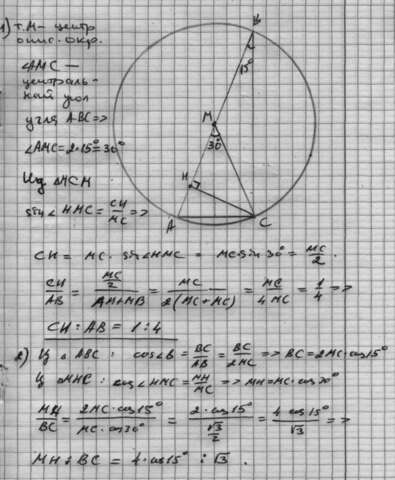 1) т. M – центр
опис. окр.
∠AMC –
централь-
ный угол
угла ABC =>
∠AMC = 2·15° = 30°
Из △MCH
sin∠HMC = CH/MC =>
B
15°
M
30°
H
A
C
CH = MC · sin∠HMC = MC sin 30° = MC/2.
CH/AB = (MC/2)/(AM+MB) = MC/(2(MC+MC)) = MC/(4MC) = 1/4 =>
CH : AB = 1 : 4
2) Из △ABC: cos∠B = BC/AB = BC/2MC => BC = 2MC·cos15°
Из △MHC: cos∠HMC = MH/MC => MH = MC·cos30°
MH/BC = (2MC·cos15°)/(MC·cos30°) = (2·cos15°)/(√3/2) = (4 cos15°)/√3 =>
MH : BC = 4·cos15° : √3.